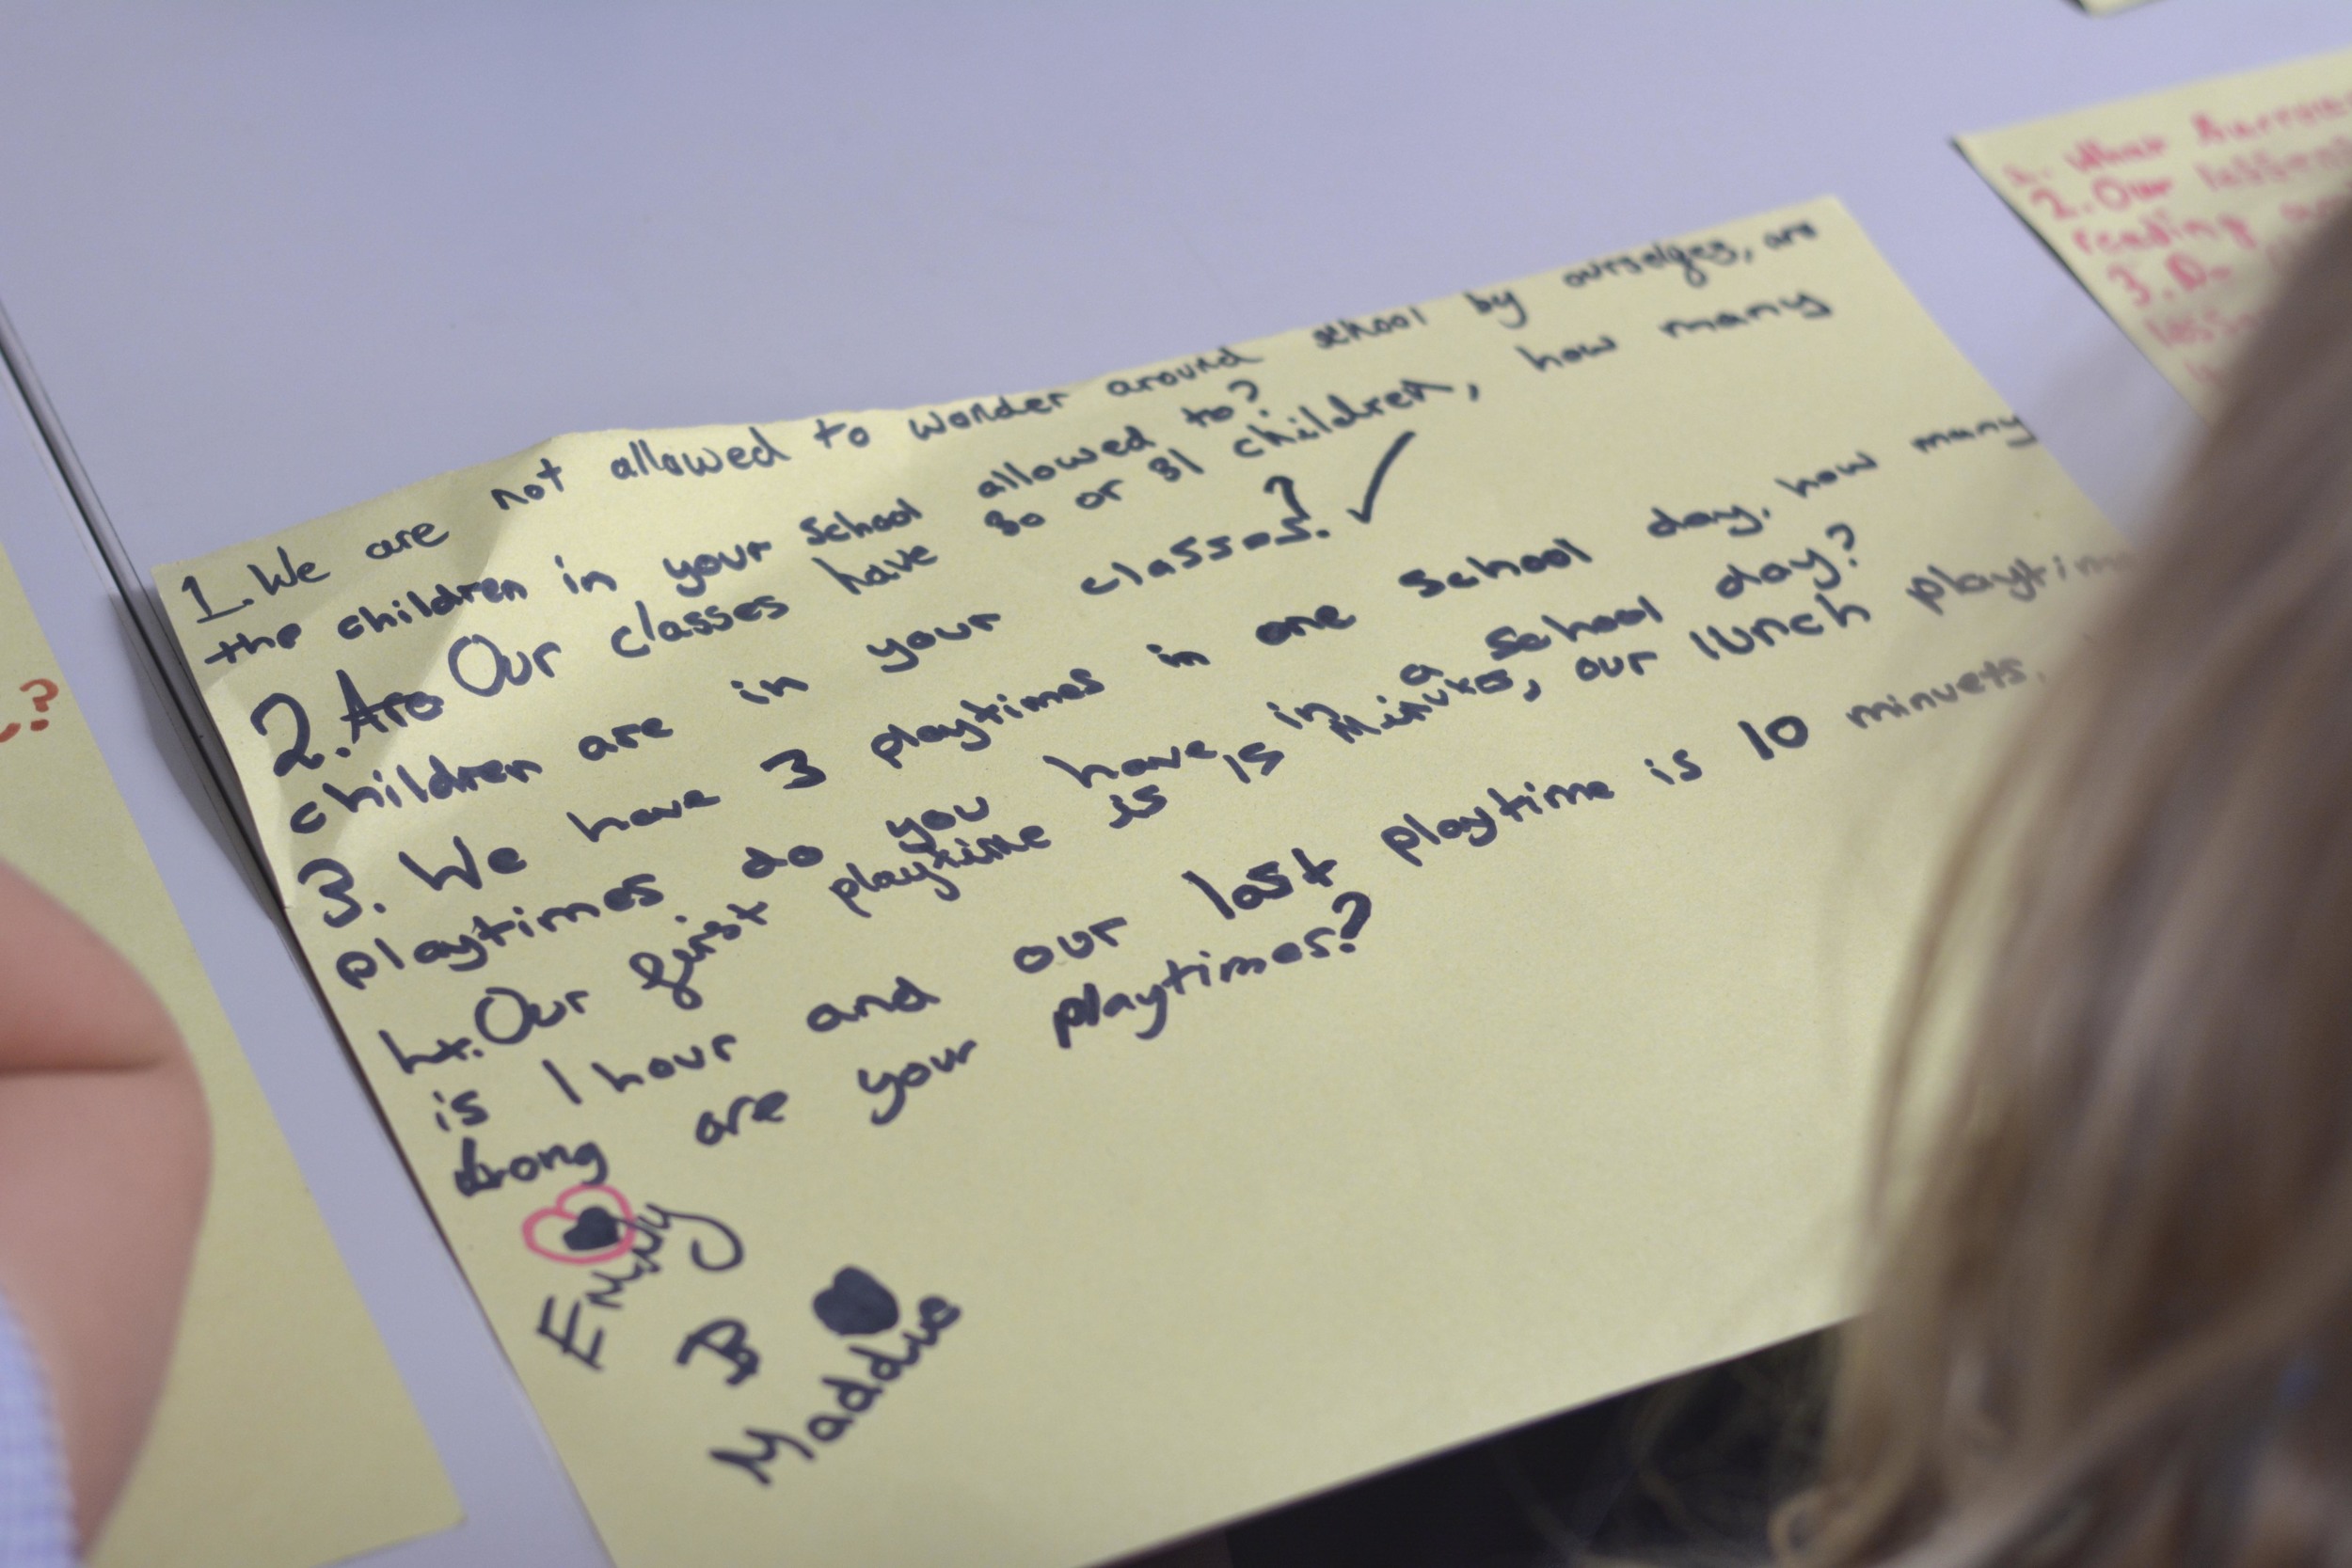 1. We are not allowed to wonder around school by ourselges, are
the children in your school allowed to?
2. Are Our classes have 30 or 31 children, how many
children are in your classes. ?
3. We have 3 playtimes in one school day, how many
playtimes do you have in a school day?
4. Our first playtime is 15 minutes, our lunch playtime
is 1 hour and our last playtime is 10 minuets,
long are your playtimes?
Emily
&
Maddie
?
1. What
2. Our
reading
3. Do